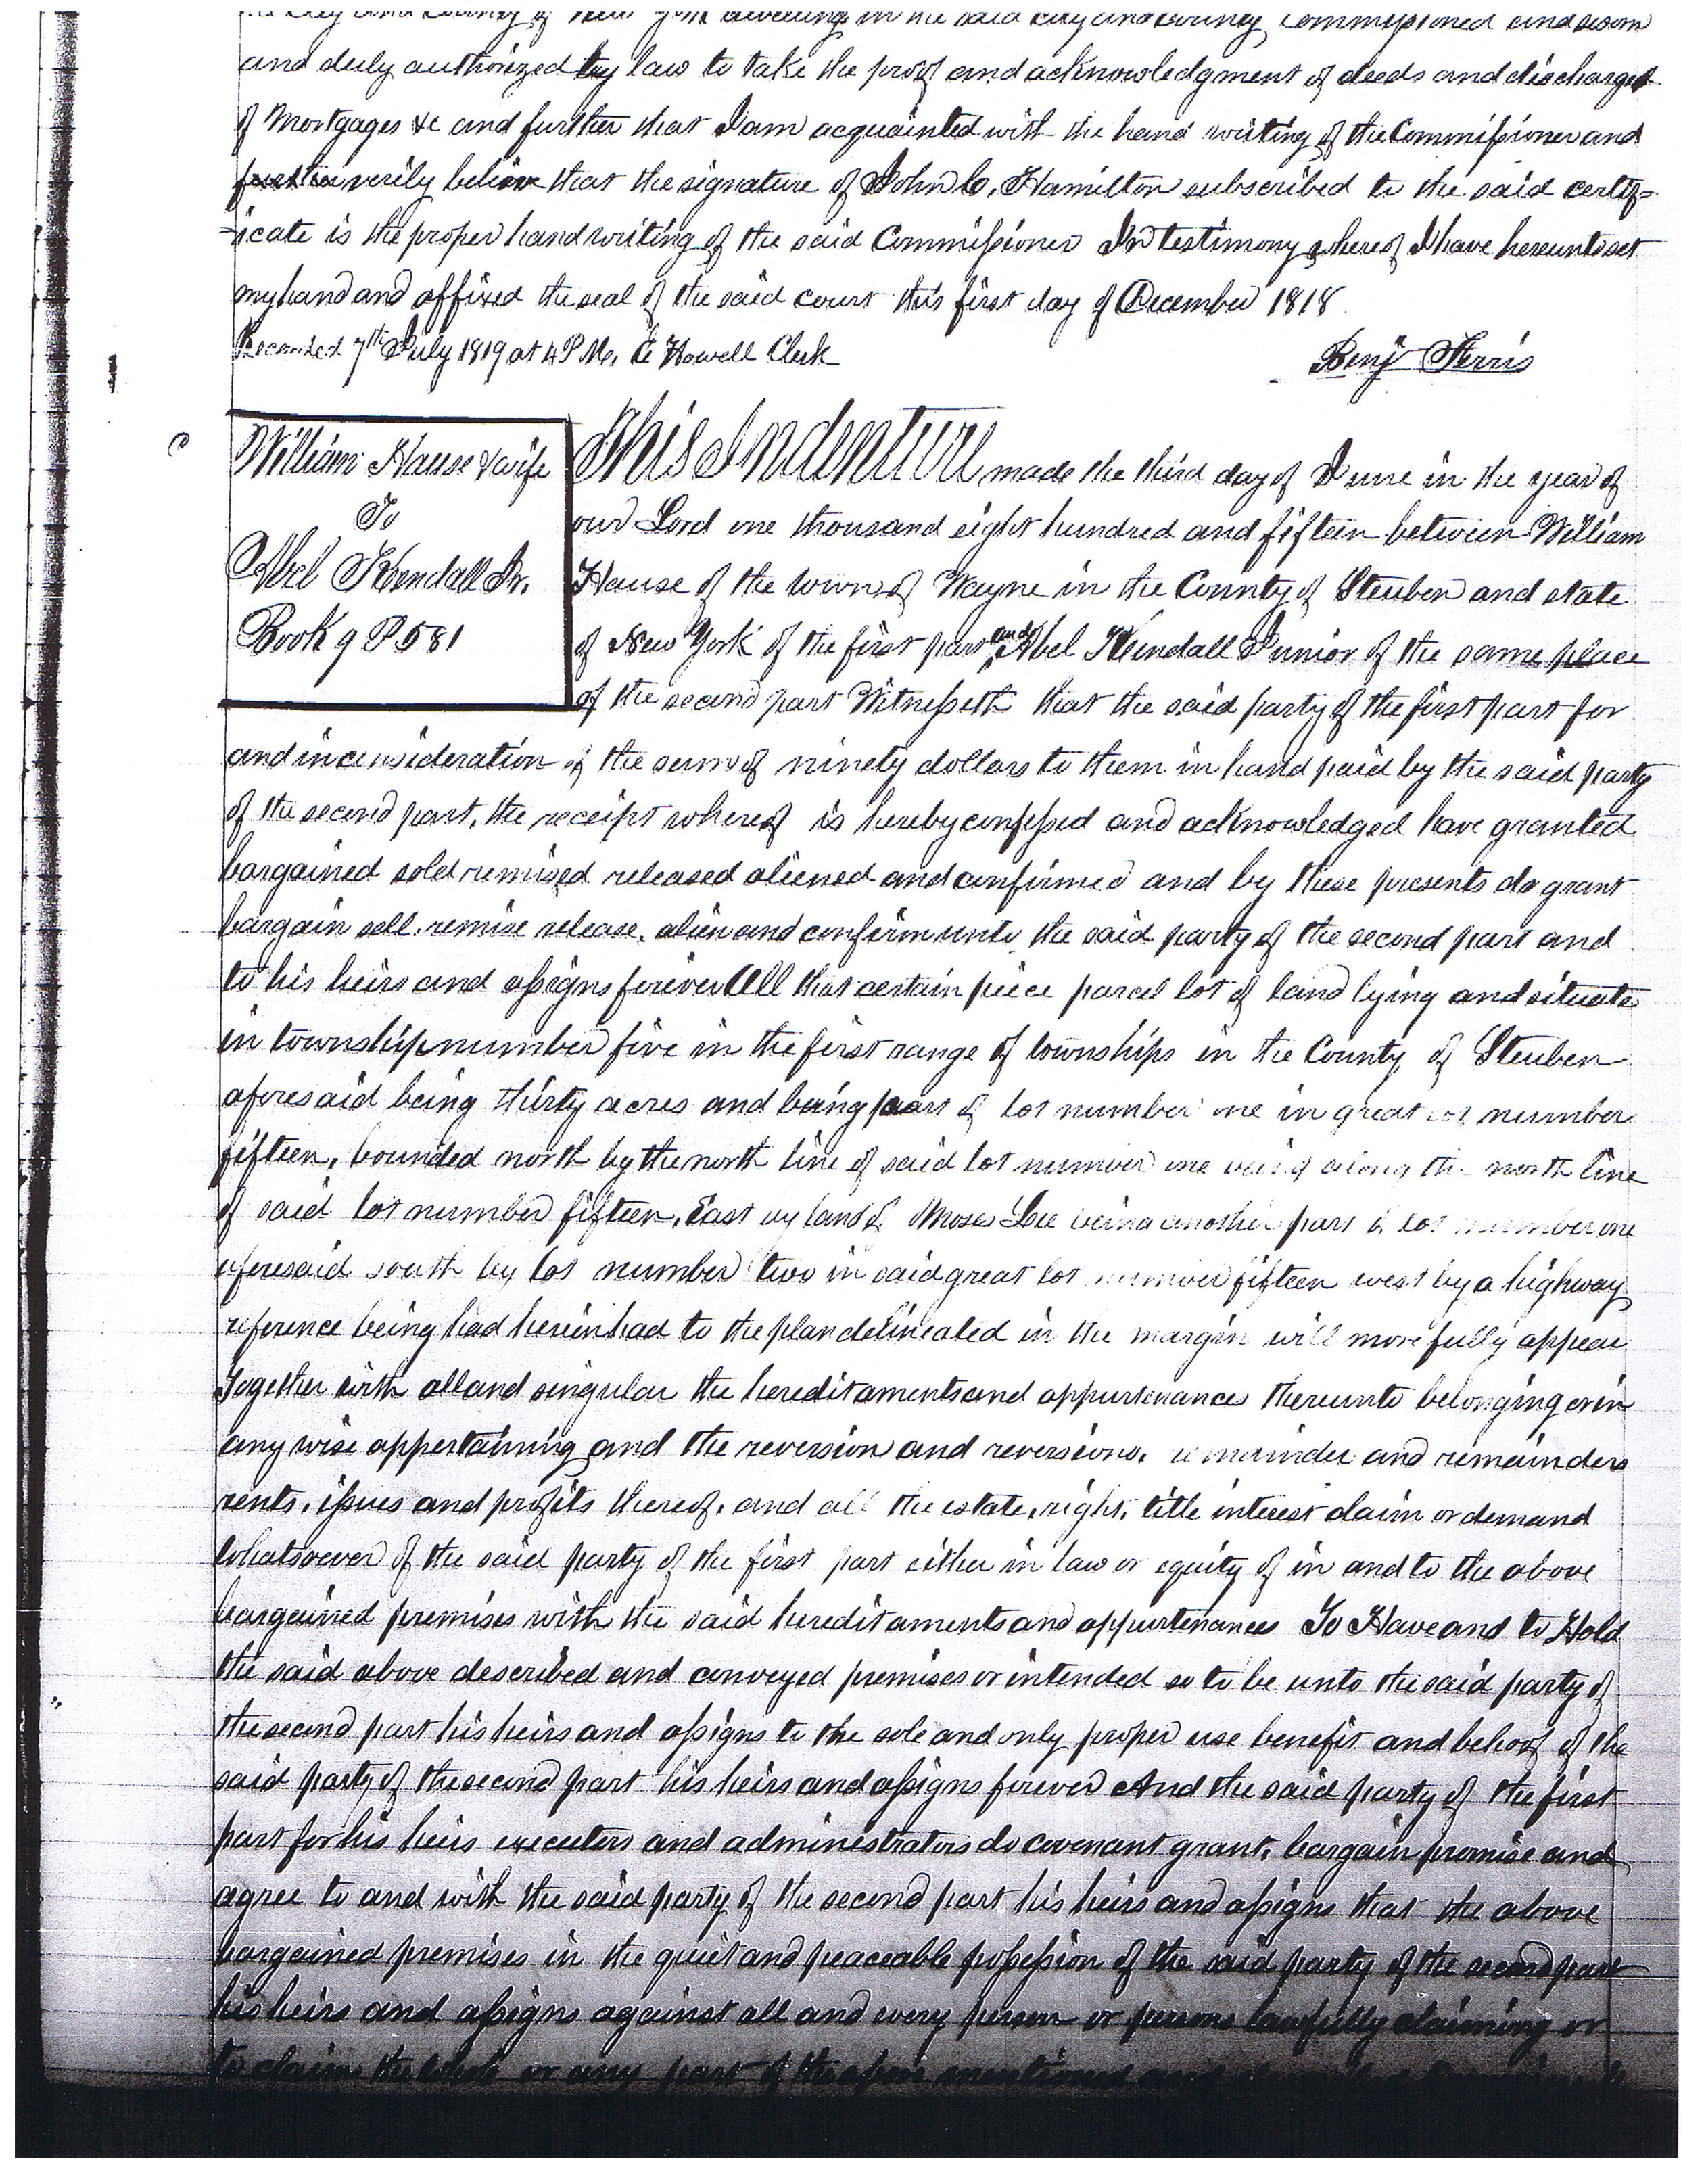 the City and County of New York dwelling in the said city and county, commissioned and sworn
and duly authorized by law to take the proof and acknowledgment of deeds and discharges
of Mortgages &c and further that I am acquainted with the hand writing of the Commissioner and
further verily believe that the signature of John C. Hamilton subscribed to the said certif=
=icate is the proper handwriting of the said Commissioner In testimony whereof I have hereunto set
my hand and affixed the seal of the said court this first day of December 1818.
Recorded 7th July 1819 at 4 P.M. E Howell Clerk
Benj Ferris
William Hause & wife
To
Abel Kendall Jr.
Book 9 P 581
This Indenture made the third day of June in the year of
our Lord one thousand eight hundred and fifteen between William
Hause of the town of Wayne in the County of Steuben and state
of New York of the first part and Abel Kendall Junior of the same place
of the second part Witnesseth that the said party of the first part for
and in consideration of the sum of ninety dollars to them in hand paid by the said party
of the second part, the receipt whereof is hereby confessed and acknowledged have granted
bargained sold remised released aliened and confirmed and by these presents do grant
bargain sell, remise release, alien and confirm unto the said party of the second part and
to his heirs and assigns forever All that certain piece parcel lot of land lying and situate
in township number five in the first range of townships in the County of Steuben
aforesaid being thirty acres and being part of lot number one in great lot number
fifteen, bounded north by the north line of said lot number one being along the north line
of said lot number fifteen, East by land of Moses Lee being another part of lot number one
aforesaid south by lot number two in said great lot number fifteen west by a highway
reference being had herein had to the plan delineated in the margin will more fully appear
Together with all and singular the hereditaments and appurtenances thereunto belonging or in
any wise appertaining and the reversion and reversions, remainder and remainders
rents, issues and profits thereof, and all the estate, right, title interest claim or demand
whatsoever of the said party of the first part either in law or equity of in and to the above
bargained premises with the said hereditaments and appurtenances To Have and to Hold
the said above described and conveyed premises or intended so to be unto the said party of
the second part his heirs and assigns to the sole and only proper use benefit and behoof of the
said party of the second part his heirs and assigns forever And the said party of the first
part for his heirs executors and administrators do covenant grant, bargain promise and
agree to and with the said party of the second part his heirs and assigns that the above
bargained premises in the quiet and peaceable possession of the said party of the second part
his heirs and assigns against all and every person or persons lawfully claiming or
to claim the whole or any part of the above mentioned and